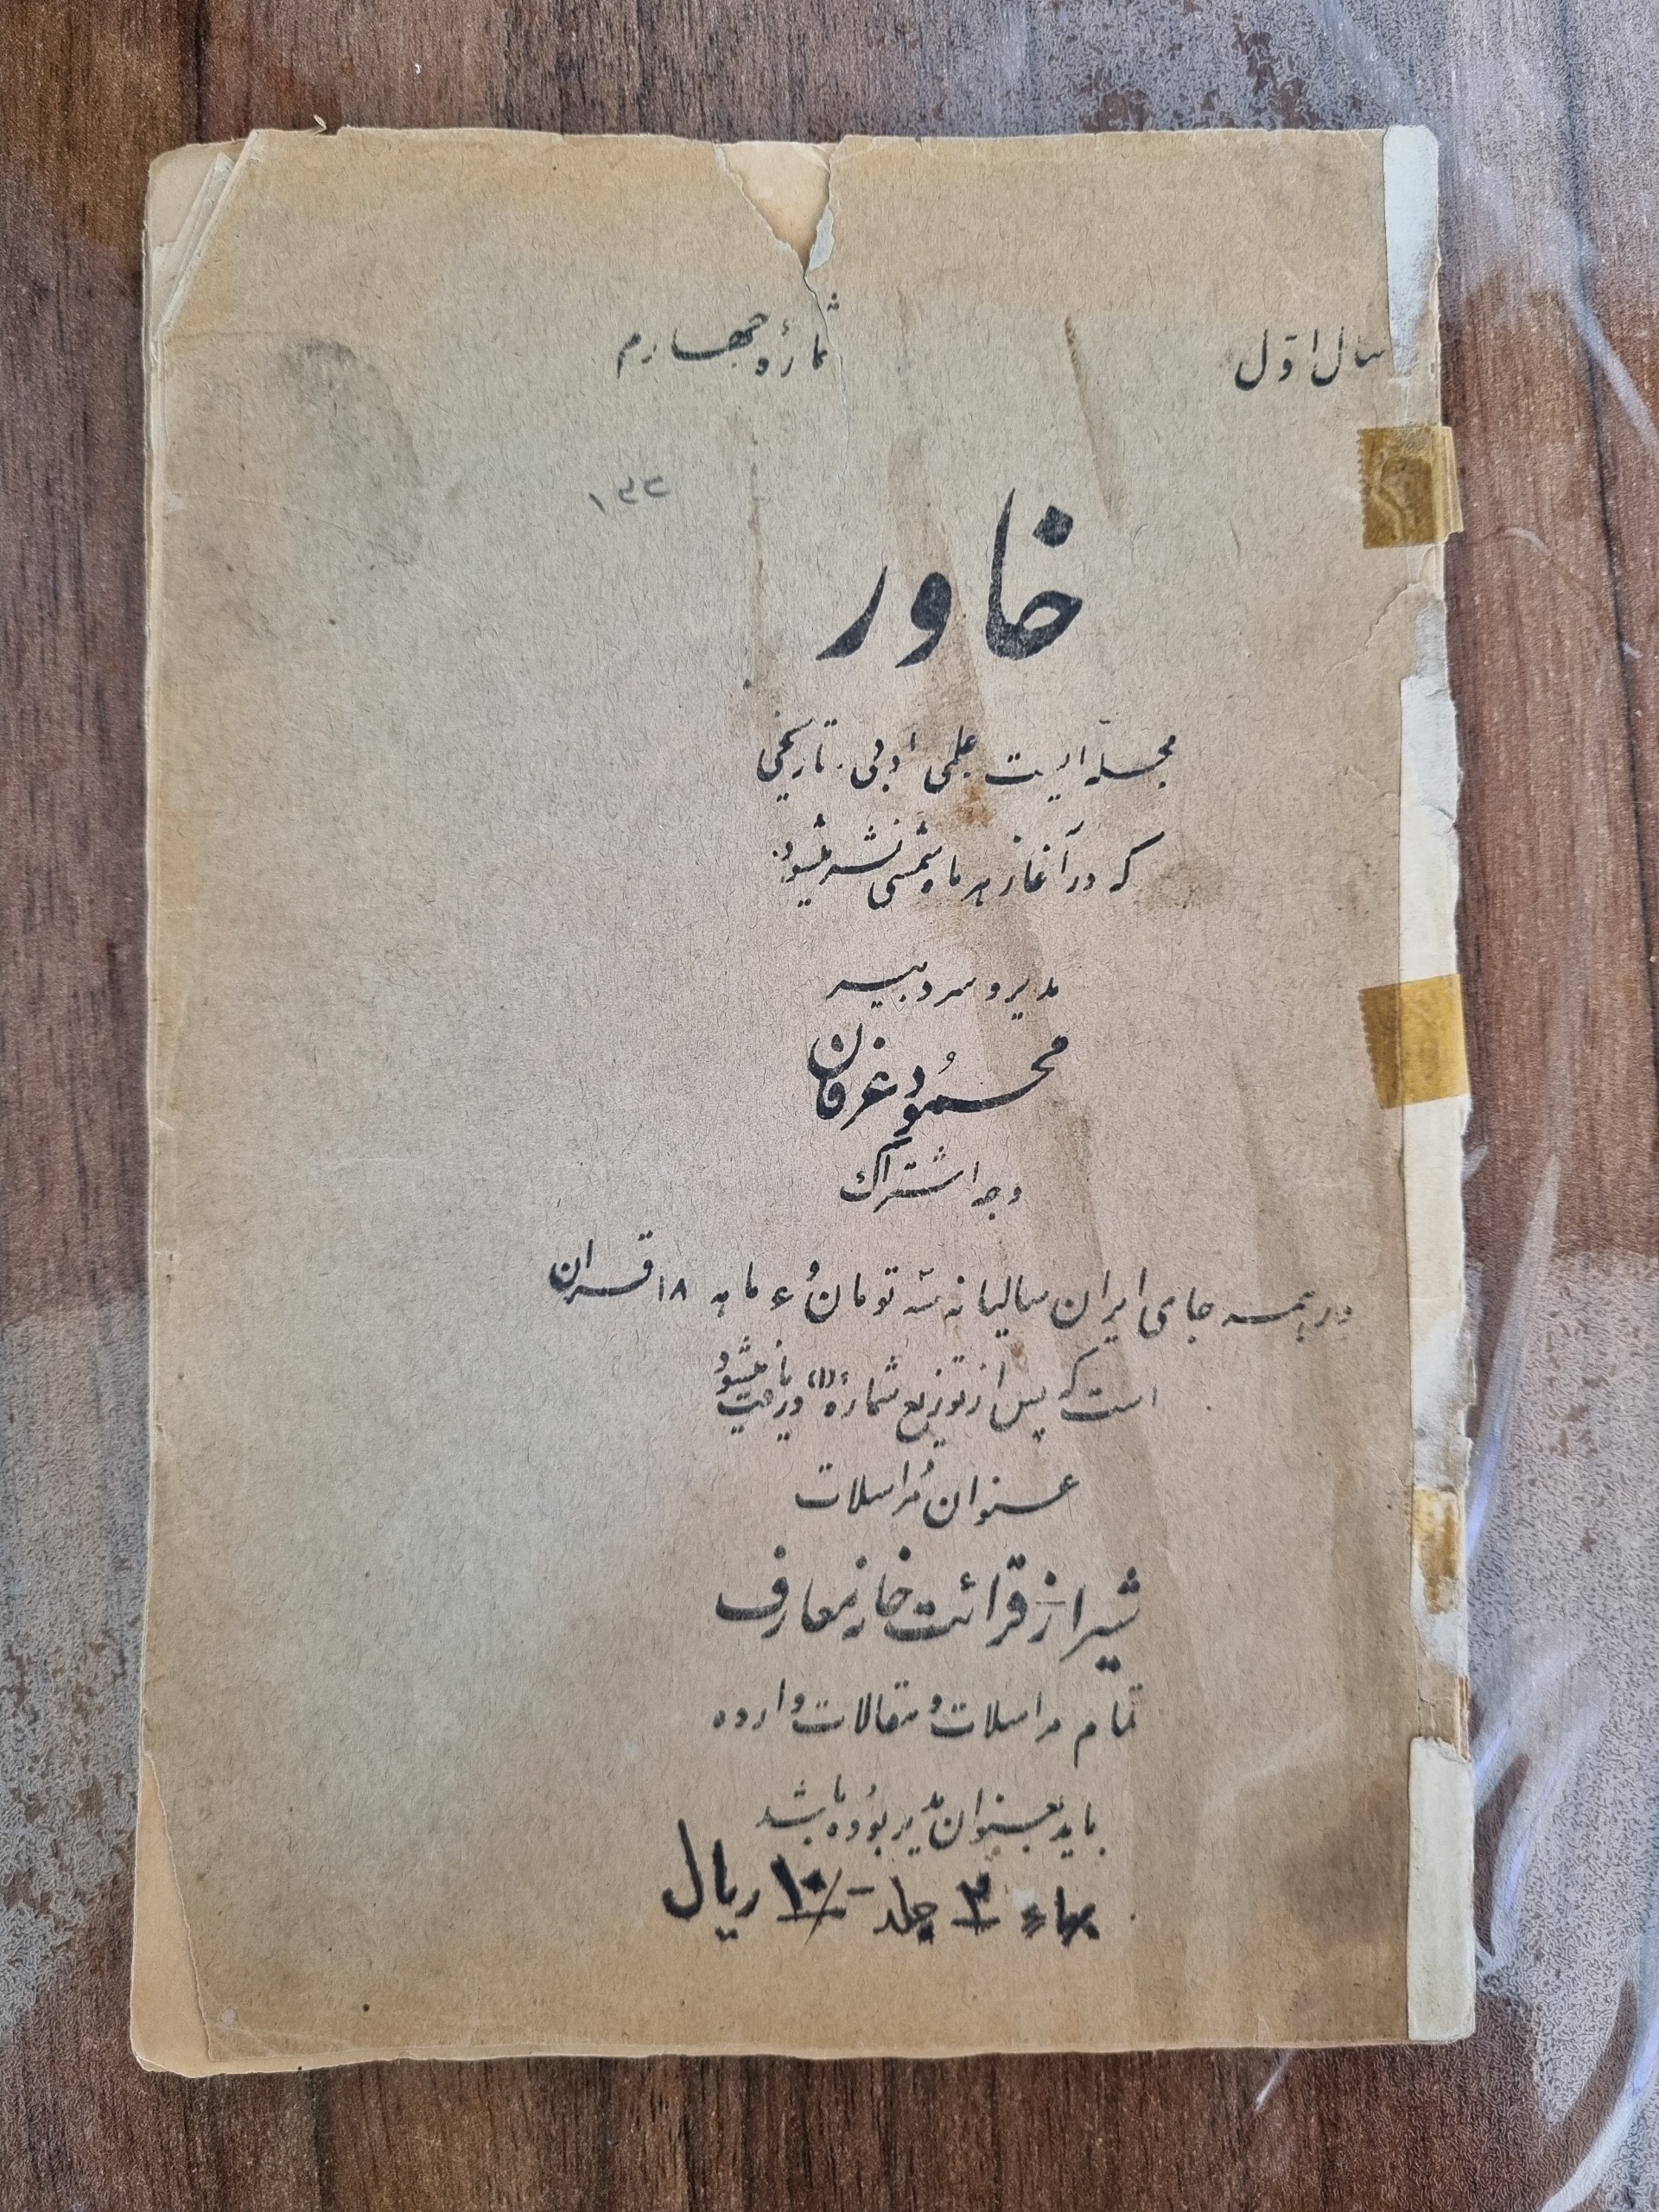 سال اوّل
شمارهٔ چهارم
خاور
مجلّه ایست علمی ادبی. تاریخی
که در آغاز هر ماه شمسی نشر میشود.
مدیر و سردبیر
محمُود عرفان
وجه اشتراک
در همه جای ایران سالیانه سه تومان وُ ۶ ماهه ۱۸ قران
است که پس از توزیع شمارهٔ (۱) دریافت میشود
عنوان مُراسلات
شیراز قرائت خانه معارف
تمام مراسلات و مقالات وارده
باید بعنوان مدیر بوُده باشد
بهاء ۳ جلد -/۱۰ ریال